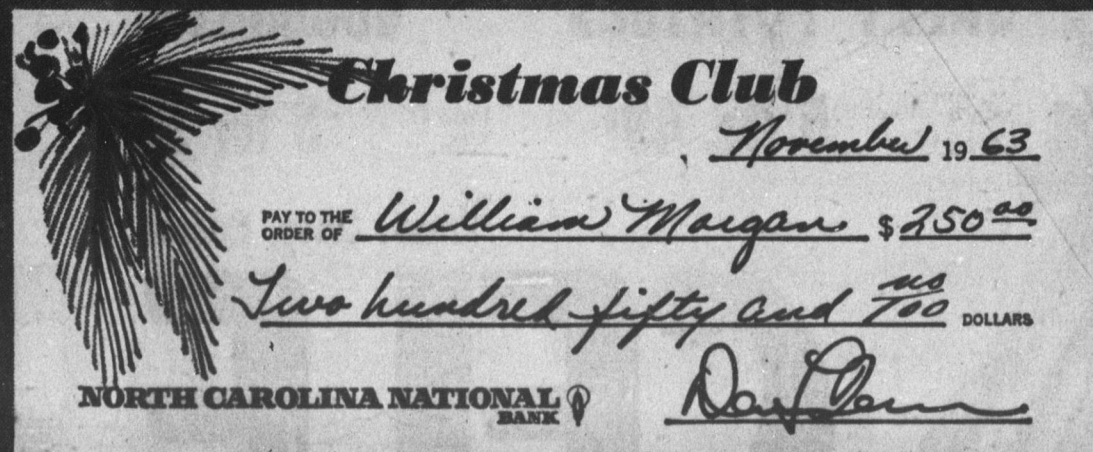 Christmas Club
November 19 63
PAY TO THE ORDER OF William Morgan $ 250 00
Two hundred fifty and no/100 DOLLARS
NORTH CAROLINA NATIONAL BANK